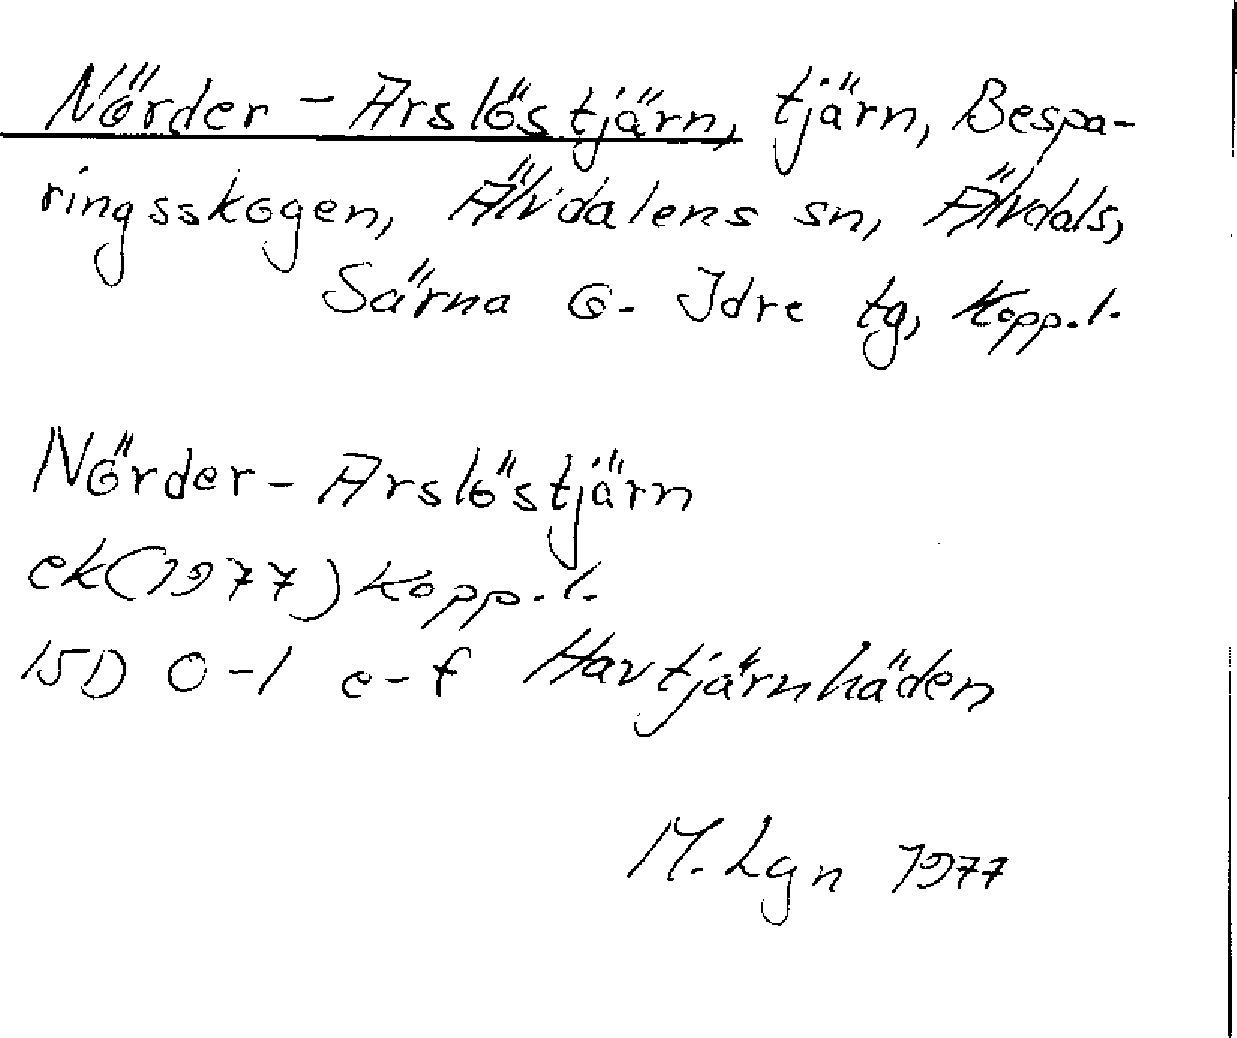 Nörder-Arslöstjärn, tjärn, Bespa-
ringsskogen, Älvdalens sn, Älvdals,
Särna o. Idre tg, Kopp.l.
Nörder-Arslöstjärn
ek(1977)Kopp.l.
15D 0-1 e-f Havtjärnhäden
M. Lgn 1977